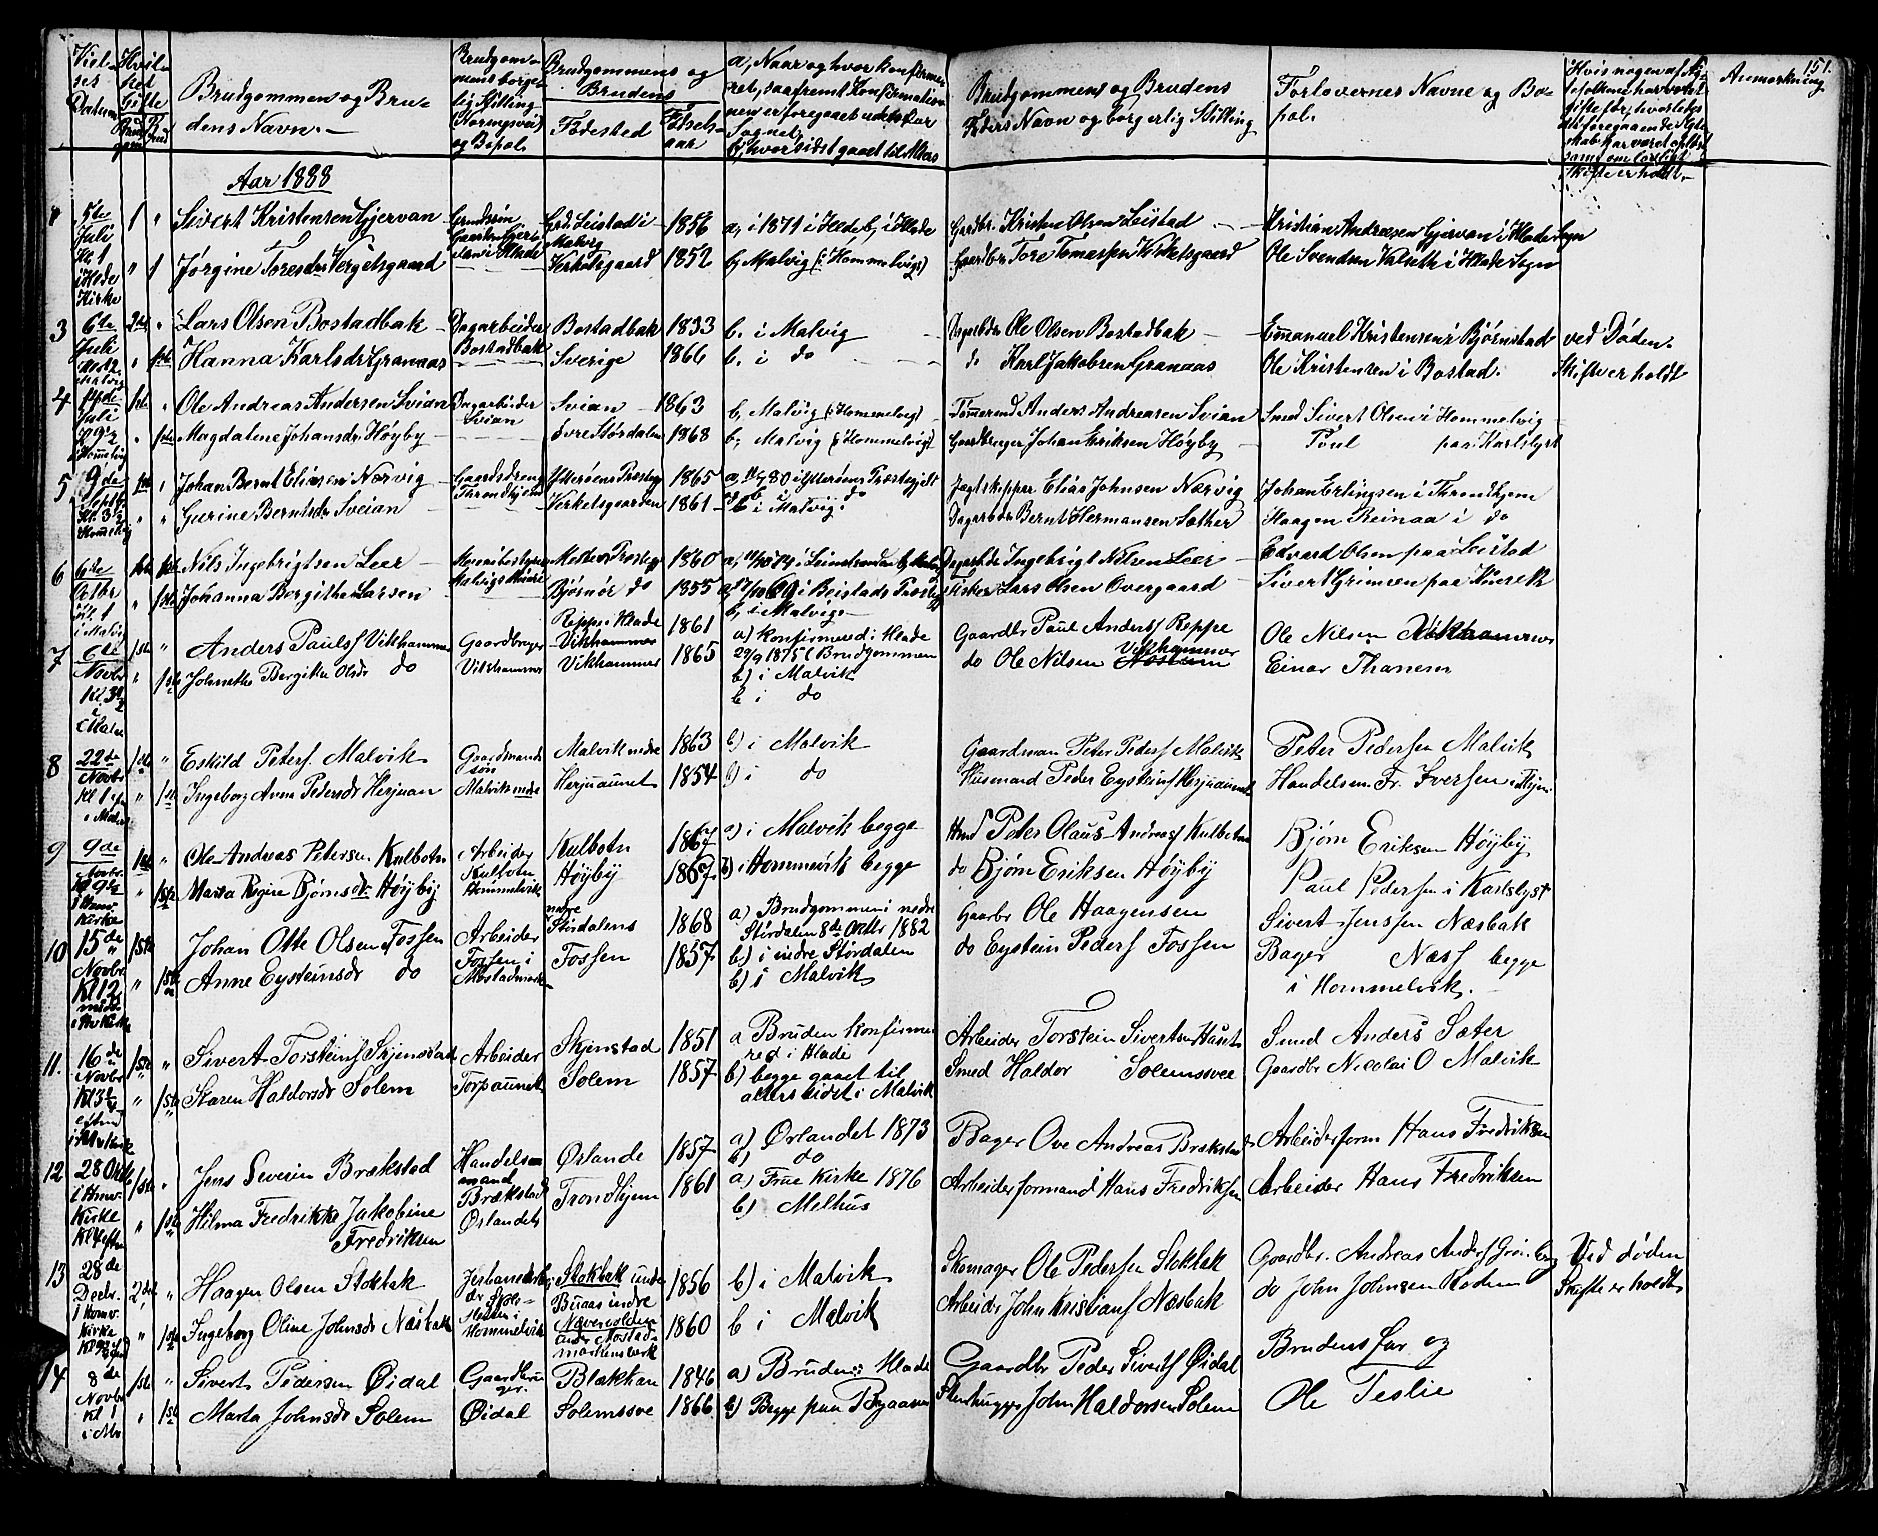 151.
Viel-
ses
Datum
Hvil-
ket
Gifte
Brud
gom
Brud
Brudgommens og Bru-
dens Navn.
Brudgom-
mens borger-
lig Stilling
(Næringsvei)
og Bopæl.
Brudgommens og
Brudens
Fødested
Fødsels-
aar
a, Naar og hvor konfirme-
ret, saafremt Konfirmatio-
nen er foregaaet udenfor
Sognet,
b, hvor sidst gaaet til Alters
Brudgommens og Brudens
Faders Navn og borgerlig Stilling
Forlovernes Navne og Bo-
pæl.
Hvis nogen af Æg-
tefolkene har været
gifte før, hvorledes
det foregaaende Ægte-
skab har været opløst
samt om lovligt
Skifte er holdt.
Anmærkning
Aar 1888
5te Juli Kl. 1 i Hlade Kirke 1 " Sivert Kristensen Gjervan Gaardssøn Grd. Leistad i Malvig 1856 a, i 1871 i Hlade b, i Hlade Gaardbr. Kristen Olsen Leistad Kristian Andreasen Gjervan i Hlade Sogn
" 1 Jørgine Toresdr Verketsgaard Verketsgaard 1852 b, Malvig (i Hommelvig) Gaardbr. Tore Tomassen Verketsgaard Ole Svendsen Valseth i Hlade Sogn
3 6te Juli i Malvig 2det " Lars Olsen Bostadbak Dagarbeider Bostadbak Bostadbak 1833 b. i Malvig Dagarbdr Ole Olsen Bostadbak Emmanuel Kristensen i Bjørnstad ved Døden.
" 1ste Hanna Karlsdr Granaas Sverige 1866 b. i do do Karl Jakobsen Granaas Ole Kristensen i Bostad. Skifte er holdt
4 14de Juli Kl 9½ i Hommelvig 1ste " Ole Andreas Andersen Svian Dagarbeider Svian Svian 1863 b, Malvig (i Hommelvig) Tømmermd Anders Andreasen Svian Smed Sivert Olsen i Hommelvig
" 1ste Magdalene Johansdr Høyby Øvre Størdalen 1868 b, Malvig (i Hommelvig) Gaardbruger Johan Eriksen Høyby Poul paa Karlslyst
5 9de Septbr Kl. 3½ Hommelvig 1ste " Johan Bernt Eliesen Nærvig Gaardsdreng Throndhjem Ytterøens Præstegj 1865 a, 80 i Ytterøens Præstegjeld b i do Jagtskipper Elias Johnsen Nærvig Johan Erlingsen i Throndhjem
" " Gurine Berntsdr Sveian Verketsgaarden 1861 b i Malvig. Dagarbdr Bernt Hermansen Sæther Haagen Reinaa i do
6 6te Octbr Kl. 1 i Malvig 1ste " Nils Ingebrigtsen Leer Melhus Præstegj 1860 Dagarbdr Ingebrigt Nilsen Leer Edvard Olsen paa Leistad
" 1ste Johanna Bergithe Larsen Bjørnør do 1855 i Beistads Præstegj b, i Malvig Fisker Lars Olsen Overgaard Sivert Grimven paa
7 6te Novbr Kl. 3½ i Malv 1ste " Anders Paulsf Vikhammer Gaardbruger Vikhammer Reppe i Hlade Vikhammer 1861 a) konfirmered i Hlade 29/9 1875 (Brudgommen Gaardbr Paul Andersf Reppe Ole Nilsen Vikhammer
" 1ste Johnette Bergitte Olsdr do Vikhammer 1865 b) i Malvik b i do do Ole Nilsen Vikhammer Einar Thanem
8 22de Novbr Kl 1 i Malv 1ste " Eskild Petersf Malvik Gaardmands søn Malvik nedre Malvik nedre 1863 b) i Malvik Gaardman Peter Pedersf Malvik Peter Pedersen Malvik
" 1ste Ingeborg Anna Pedersdr Herjuan Herjuaunet 1854 b) i do Husmand Peder Eysteinsf Herjuaunet Handelsm. Fr. Iversen i Thjm
9 9de Novbr Kl 9½ i Homv. Kirke 1ste " Ole Andreas Petersen Kulbotn Arbeider Kulbotn Hommelvik Kulbotn 1867 a) i Malvik begge Hmd Peter Olaus Andreasf Kulbotn Bjørn Eriksen Høyby
" 1ste Marta Regine Bjørnsdr. Høyby Høyby 1867 b) i Hommelvik begge do Bjørn Eriksen Høyby Paul Pedersen i Karlslyst
10 15de Novbr Kl 12 i Hv Kirke 1ste Johan Otte Olsen Fossen Arbeider Fossen i Mostadmark nedre Stördalens 1868 a) Brudgommen i nedre Stördalen 8de Octbr 1882 Gaarbr Ole Haagensen Sivert Jenssen Næsbak
" 1ste Anne Eysteinsdr do Fossen 1857 b) i nedre Stördalen b) i Malvik do Eystein Pedersf Fossen Bager Næss begge i Hommelvik.
11. 16de Novbr Kl 3 eftm i Hvkirke 1ste " Sivert Torsteinsf Skjenstad Arbeider Torpaunet Skjenstad 1851 a Bruden konfirmered i Hlade Arbeider Torstein Sivertsen Smed Anders Sæter
" 1ste Karen Haldorsdr Solem Solem 1857 b) begge gaaet til alters sidst i Malvik Smed Haldor Solemssvee Gaardbr Nicolai O Malvik
12 28 Octb i Hmv. Kirke Kl 4 eftm 1ste " Jens Severin Brækstad Handelsmand Brækstad Ørlandet Ørlande 1857 a) Ørlandet 1873 b) do Bager Ove Andreas Brækstad Arbeiderform Hans Fredriksen
" 1ste Hilma Fredrikke Jakobine Fredriksen Trondhjem 1861 a) Frue Kirke 1876 b) Melhus Arbeiderformand Hans Fredriksen Arbeider Hans Fredriksen
13 28de Decbr. i Homv. Kirke 2det " Haagen Olsen Stokbak Hommelvik Stokbak under Buaas indre 1856 b) i Malvik Skomager Ole Pedersen Stokbak Gaardbr. Andreas Andersf Ved døden
" 1ste Ingeborg Oline Johnsdr Næsbak Næverolden under Mostadmarkens verk 1860 b i Malvik Arbeider John Kristiansf Næsbak do John Johnsen Skifte er holdt
14 8de Novbr Kl 1 i Mv 1ste " Sivert Pedersen Øidal Gaardbruger. Øidal Blækkan 1846 a) Bruden i Hlade Gaardbr Peder Sivertsf Øidal Brudens far og
" 1ste Marta Johnsdr Solem Solemssve 1866 b) Begge paa Stenhugger John Haldorsen Solem Ole Teslie